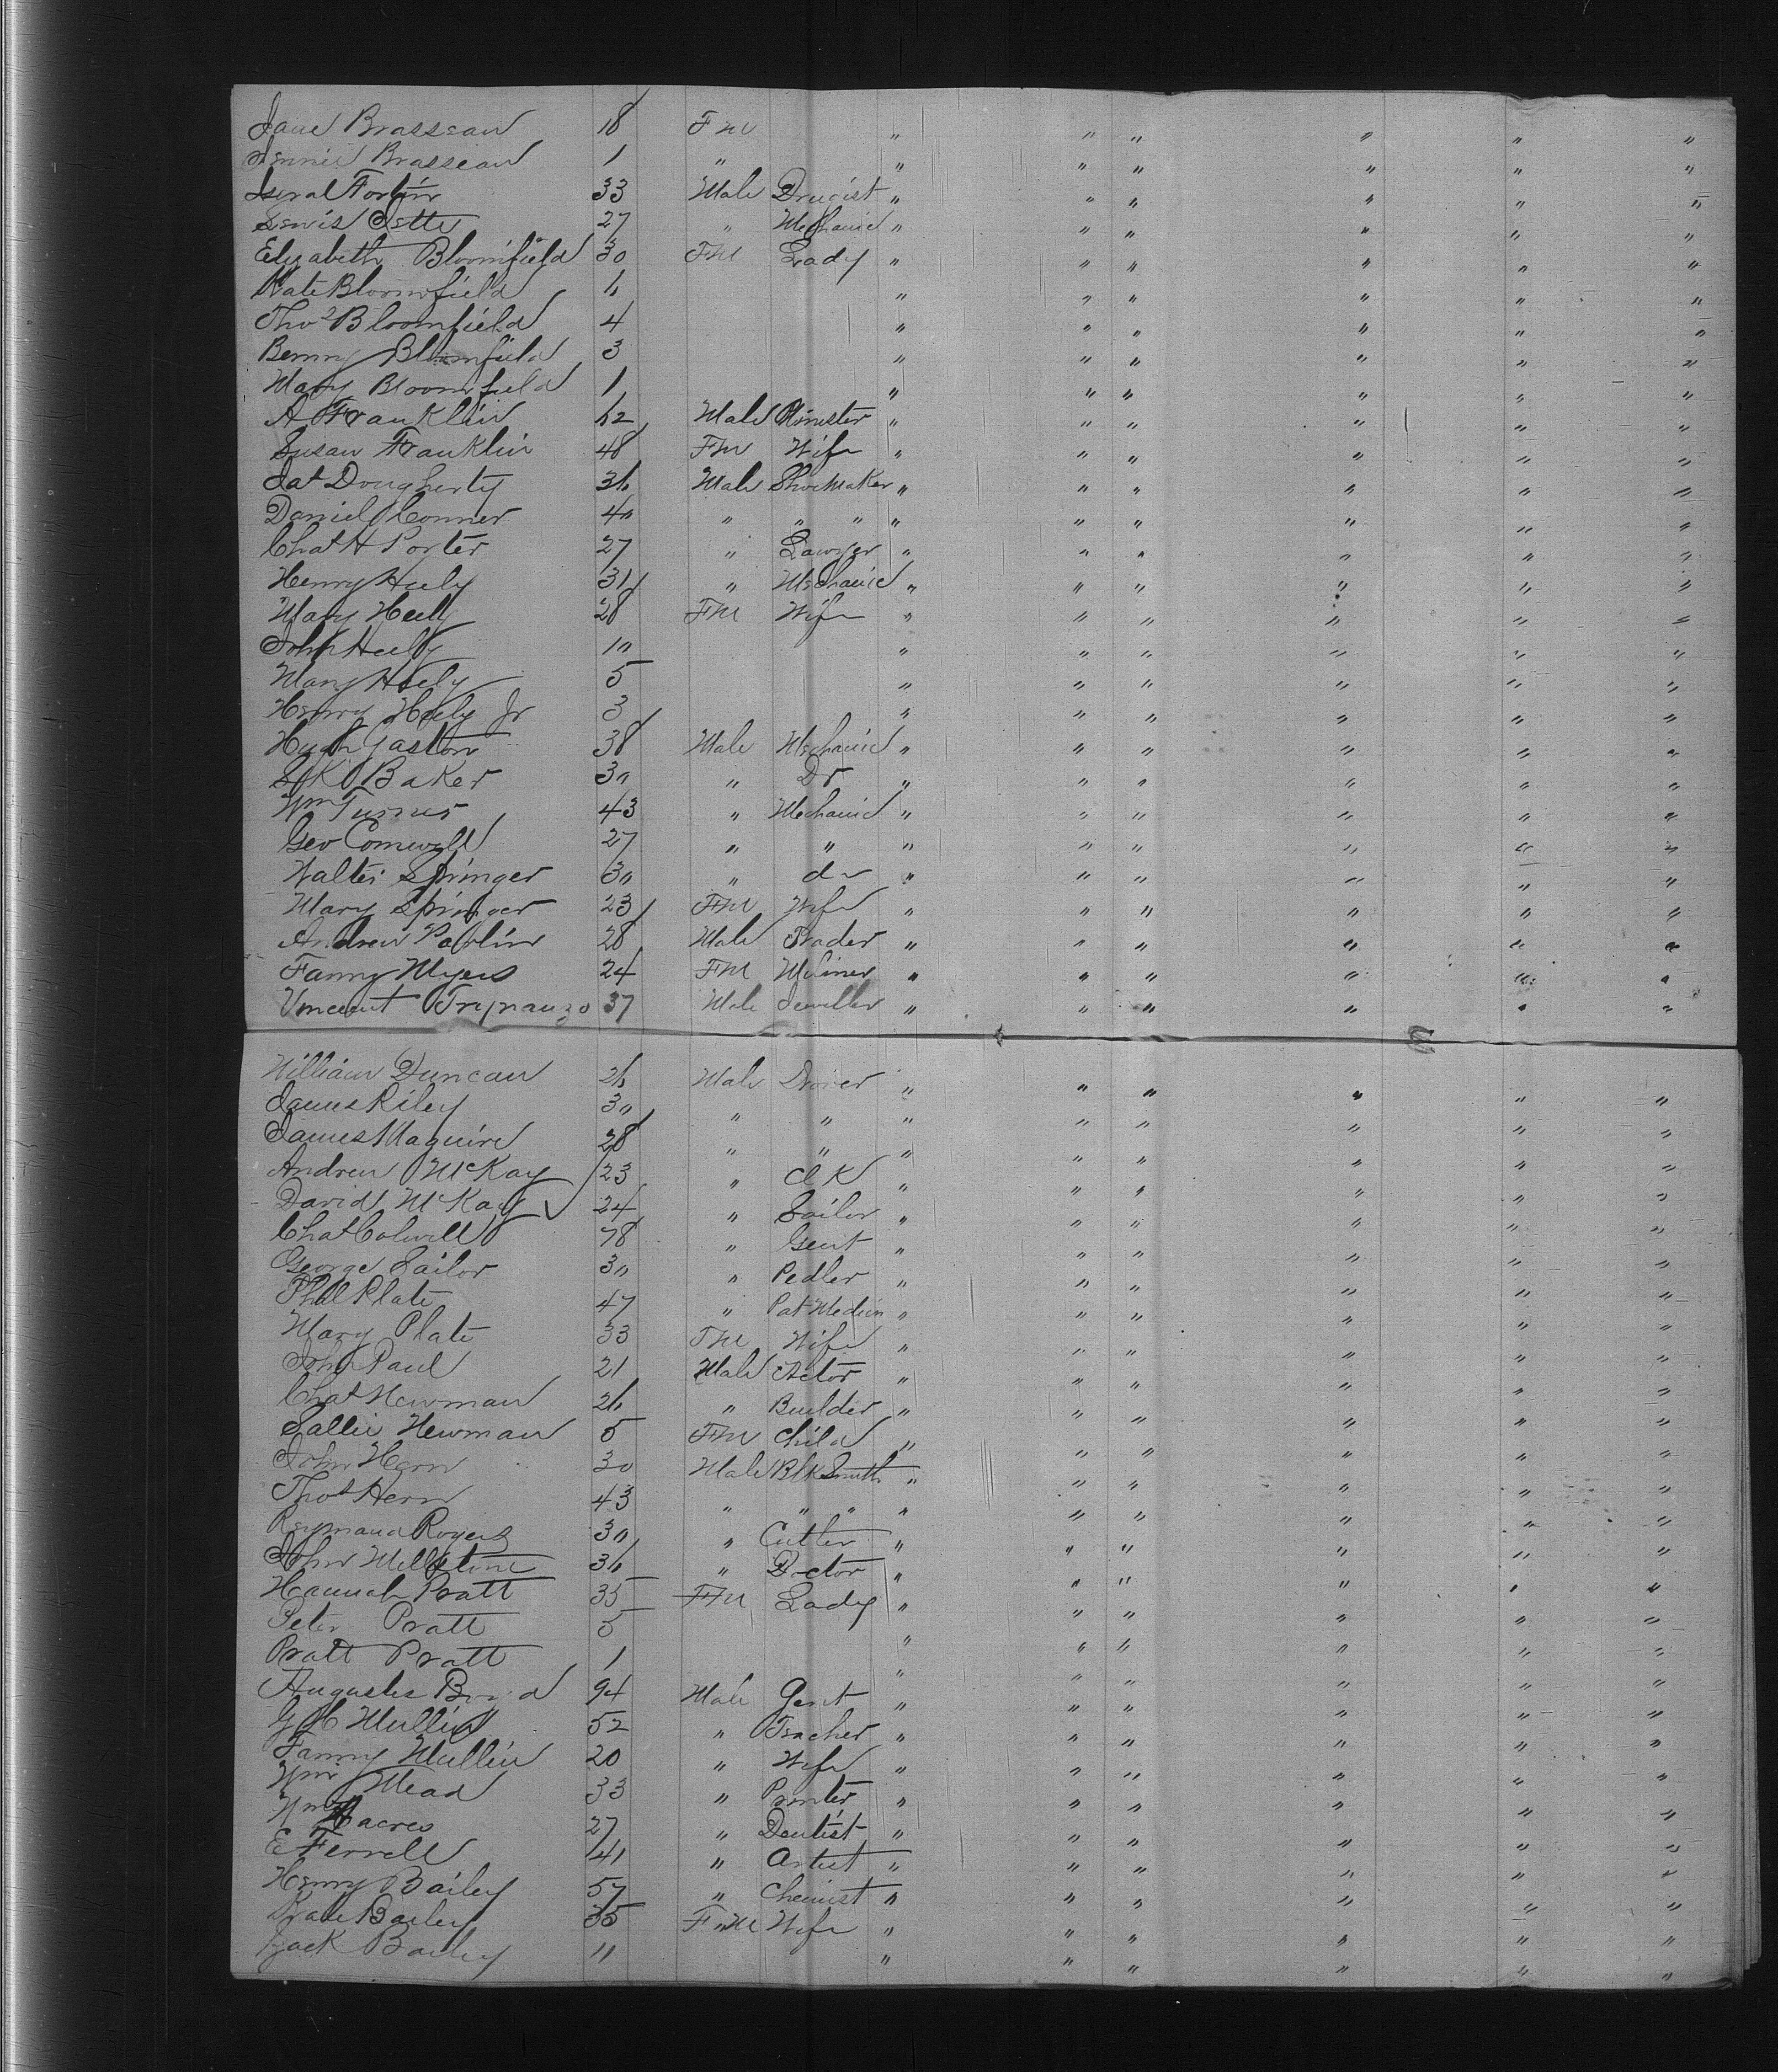 Jane Brasseau 18 Fm " " " " " "
Jennie Brasseau 1 " " " " " " "
Iseral Fortin 33 Male Drugist " " " " " "
Lewis Oette 27 " Mechanic " " " " " "
Elizabeth Bloomfield 30 Fm Lady " " " " " "
Kate Bloomfield 6 " " " " " "
Thos Bloomfield 4 " " " " " "
Benny Bloomfield 3 " " " " " "
Mary Bloomfield 1 " " " " " "
A Franklin 62 Male Minister " " " " " "
Susan Franklin 48 Fm Wife " " " " " "
Jas Dougherty 36 Male Shoemaker " " " " " "
Daniel Conner 40 " " " " " " " " "
Chas H Porter 27 " Lawyer " " " " " "
Henry Heely 31 " Mechanic " " " " " "
Mary Heely 28 Fm Wife " " " " " "
John Heely 10 " " " " " "
Mary Heely 5 " " " " " "
Henry Heely Jr 3 " " " " " "
Hugh Gaston 38 Male Mechanic " " " " " "
Baker 30 " Dr " " " " " "
Wm Turner 43 " Mechanic " " " " " "
Geo Cornwell 27 " " " " " " " "
Walter Springer 30 " do " " " " " "
Mary Springer 23 Fm Wife " " " " " "
Andrew Paulin 28 Male Trader " " " " " "
Fanny Myers 24 Fm Miliner " " " " " "
Vincent 37 Male Jeweller " " " " " "
William Duncan 26 Male Drover " " " " " "
James Riley 30 " " " " " " " "
James Maguire 28 " " " " " " " "
Andrew McKay 23 " Clk " " " " " "
David McKay 24 " Sailor " " " " " "
Chas Colwell 78 " Gent " " " " " "
George Sailor 30 " Pedler " " " " " "
Phil Plate 47 " Pat Medicin " " " " " "
Mary Plate 33 Fm Wife " " " " " "
John Paul 21 Male Actor " " " " " "
Chas Newman 26 " Builder " " " " " "
Sallie Newman 5 Fm Child " " " " " "
John Hern 30 Male Blk Smith " " " " " "
Thos Hern 43 " " " " " " " " "
Reymand Rogers 30 " Cutler " " " " " "
John Millstone 36 " Doctor " " " " " "
Hannah Pratt 35 Fm Lady " " " " " "
Peter Pratt 5 " " " " " "
Pratt Pratt 1 " " " " " "
Augustus 94 Male Gent " " " " " "
G H Mullin 52 " Teacher " " " " " "
Fanny Mullin 20 " Wife " " " " " "
Wm Mead 33 " Printer " " " " " "
Wm Hacres 27 " Dentist " " " " " "
E Ferrell 41 " Artist " " " " " "
Henry Bailey 57 " Chemist " " " " " "
Kate Bailey 35 Fm Wife " " " " " "
Jack Bailey 11 " " " " " "